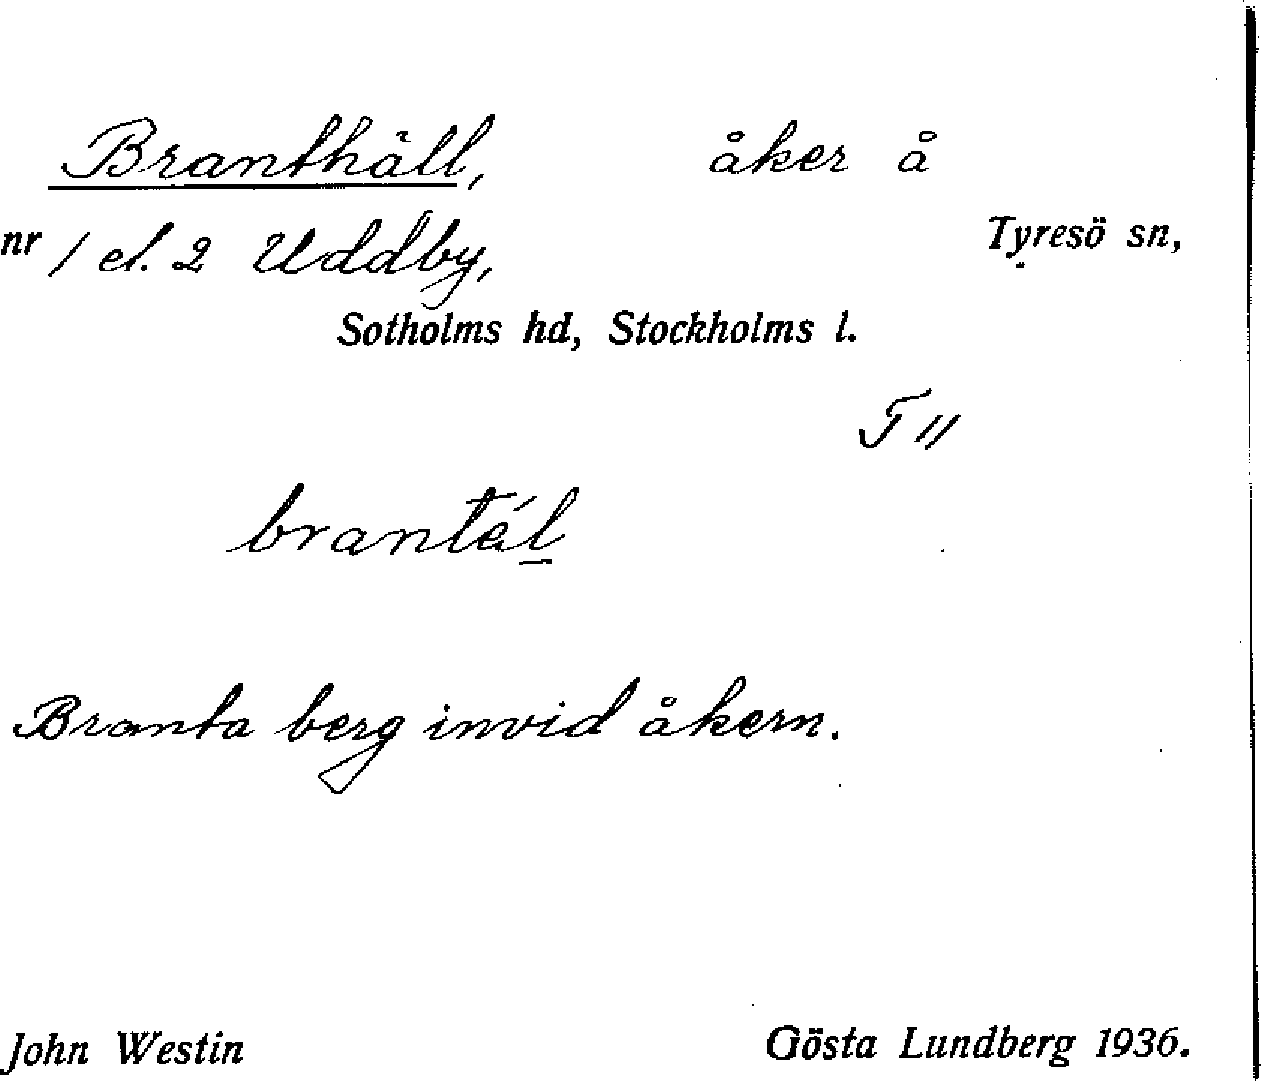 Branthäll, åker å
nr 1 el. 2 Uddby, Tyresö sn,
Sotholms hd, Stockholms l.
F 11
brantál
Branta berg invid åkern.
John Westin Gösta Lundberg 1936.